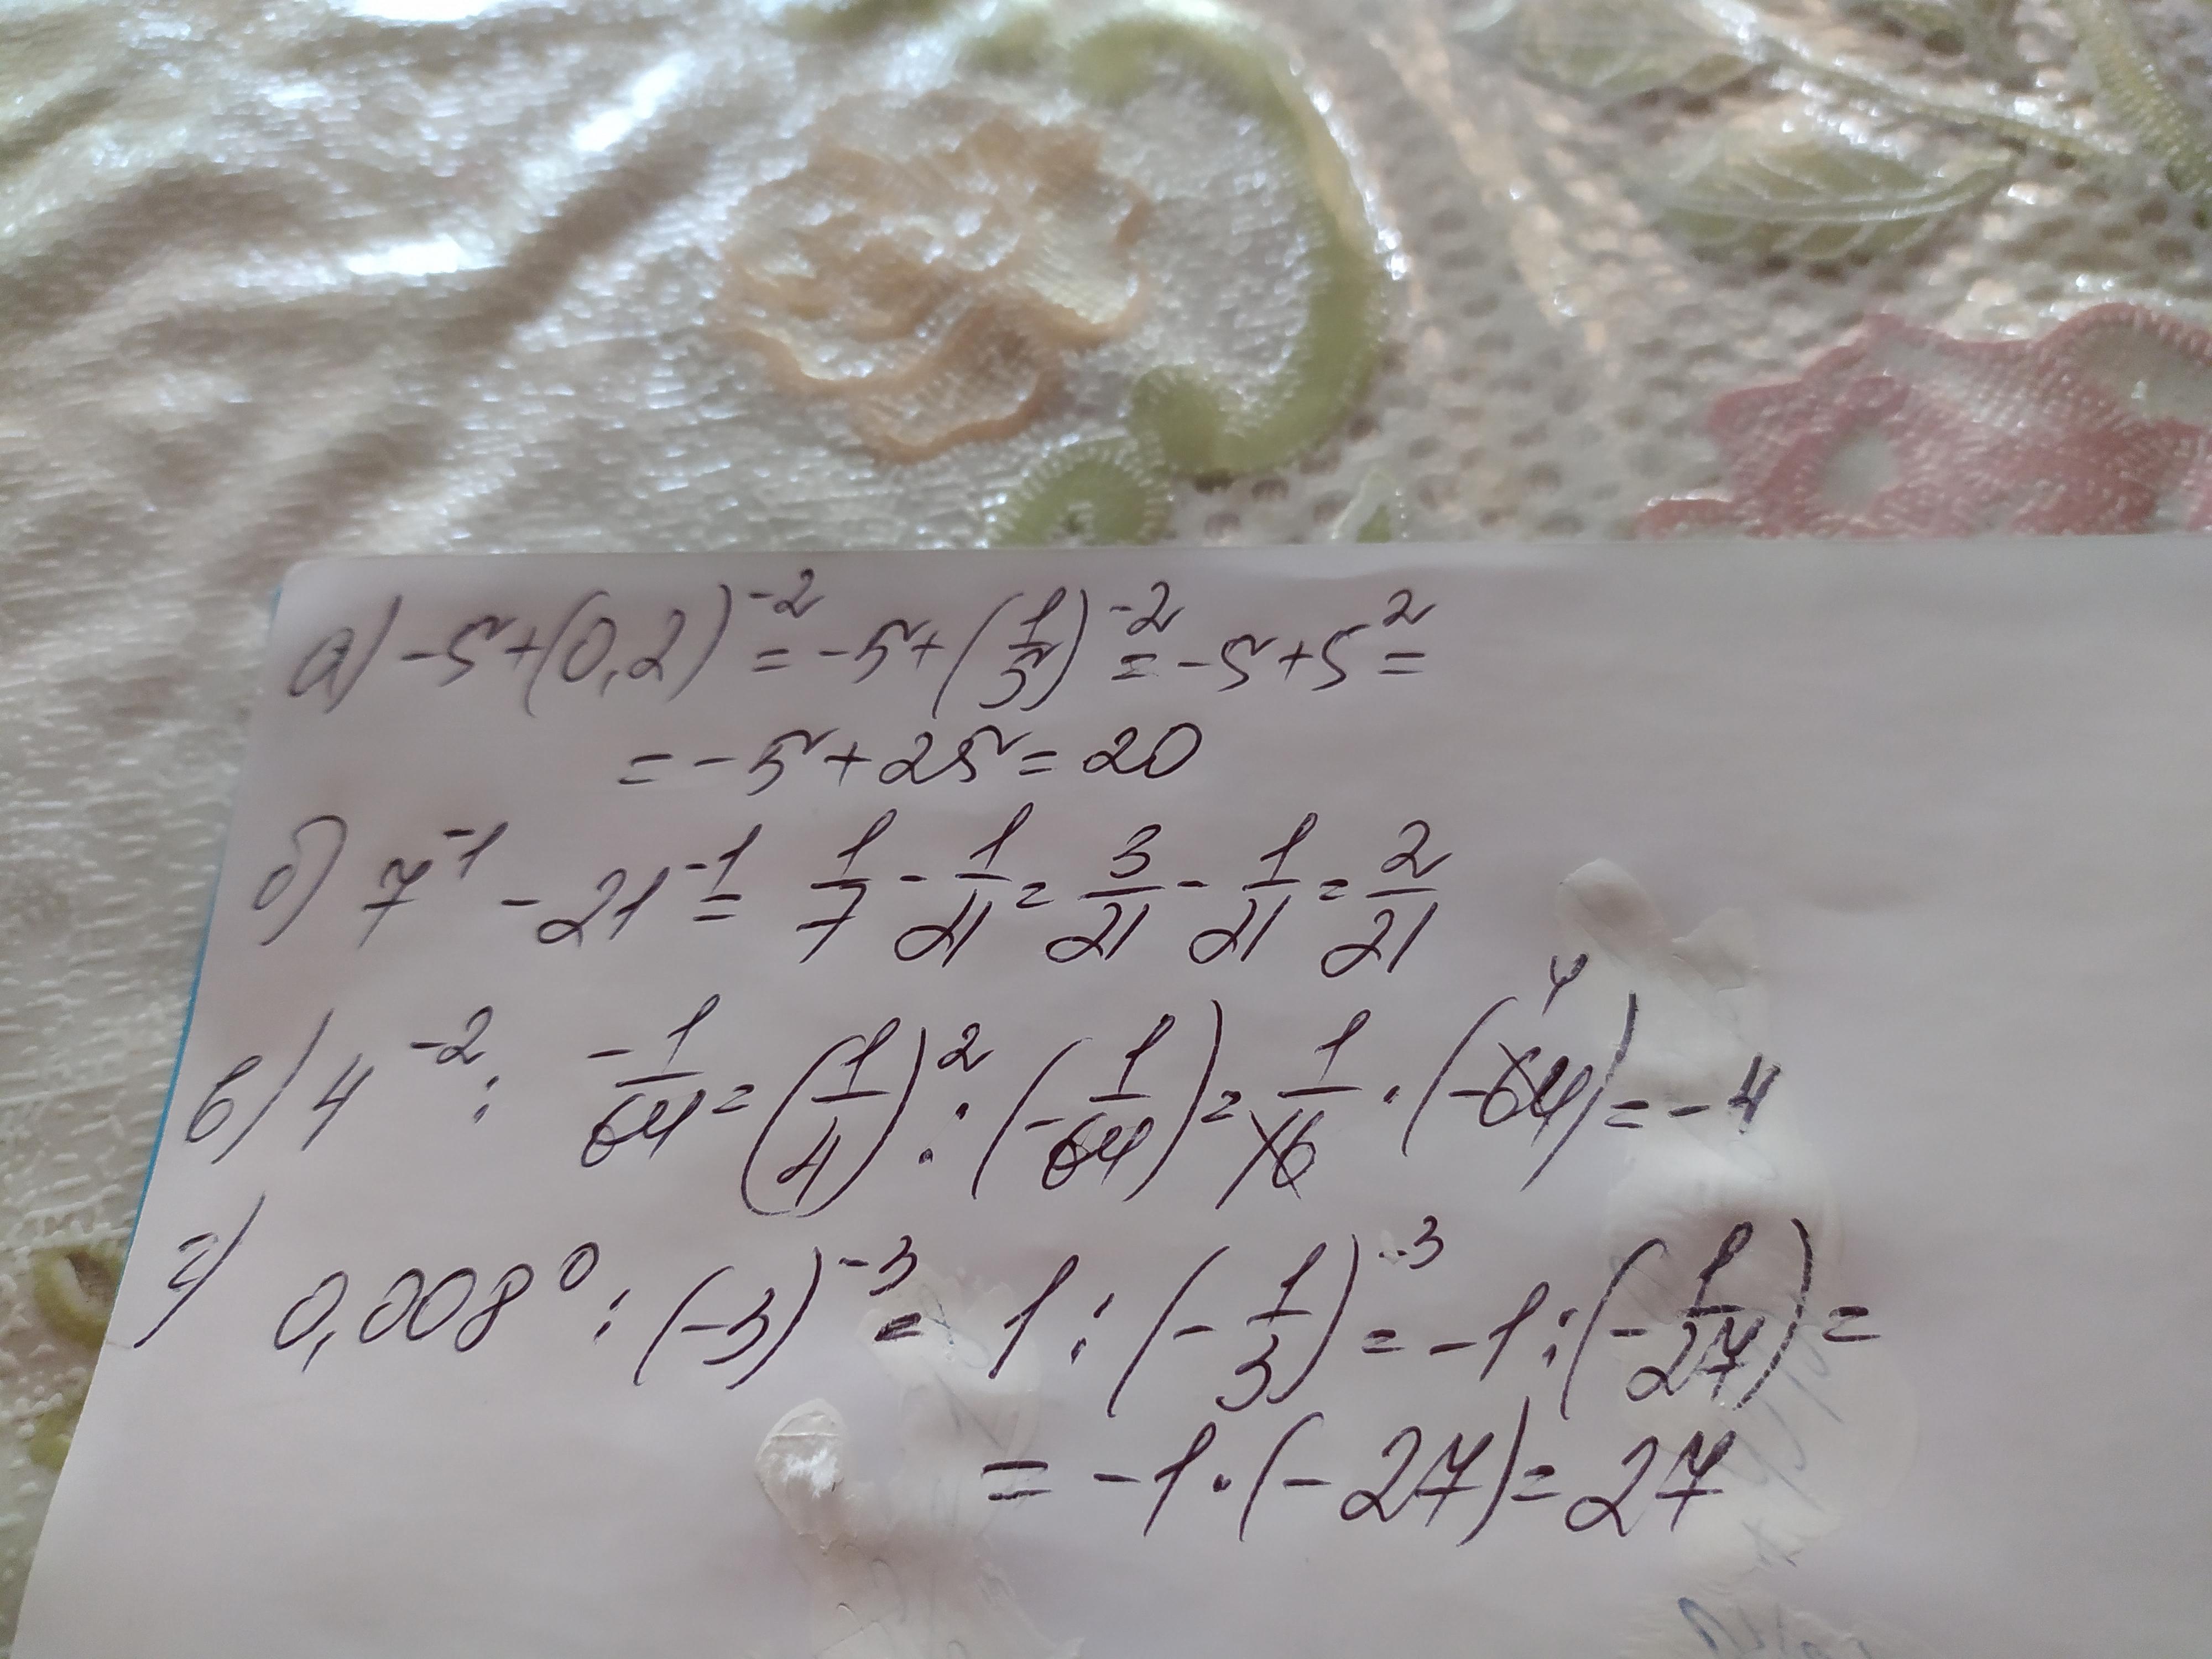 а) -5+(0,2)^-2 = -5+(1/5)^-2 = -5+5^2 =
= -5+25 = 20
б) 7^-1 - 21^-1 = 1/7 - 1/21 = 3/21 - 1/21 = 2/21
в) 4^-2 : -1/64 = (1/4)^2 : (-1/64) = 1/16 · (-64) 4 = -4
г) 0,008^0 : (-3)^-3 = 1 : (-1/3)^-3 = -1 : (-1/27) =
= -1 · (-27) = 27